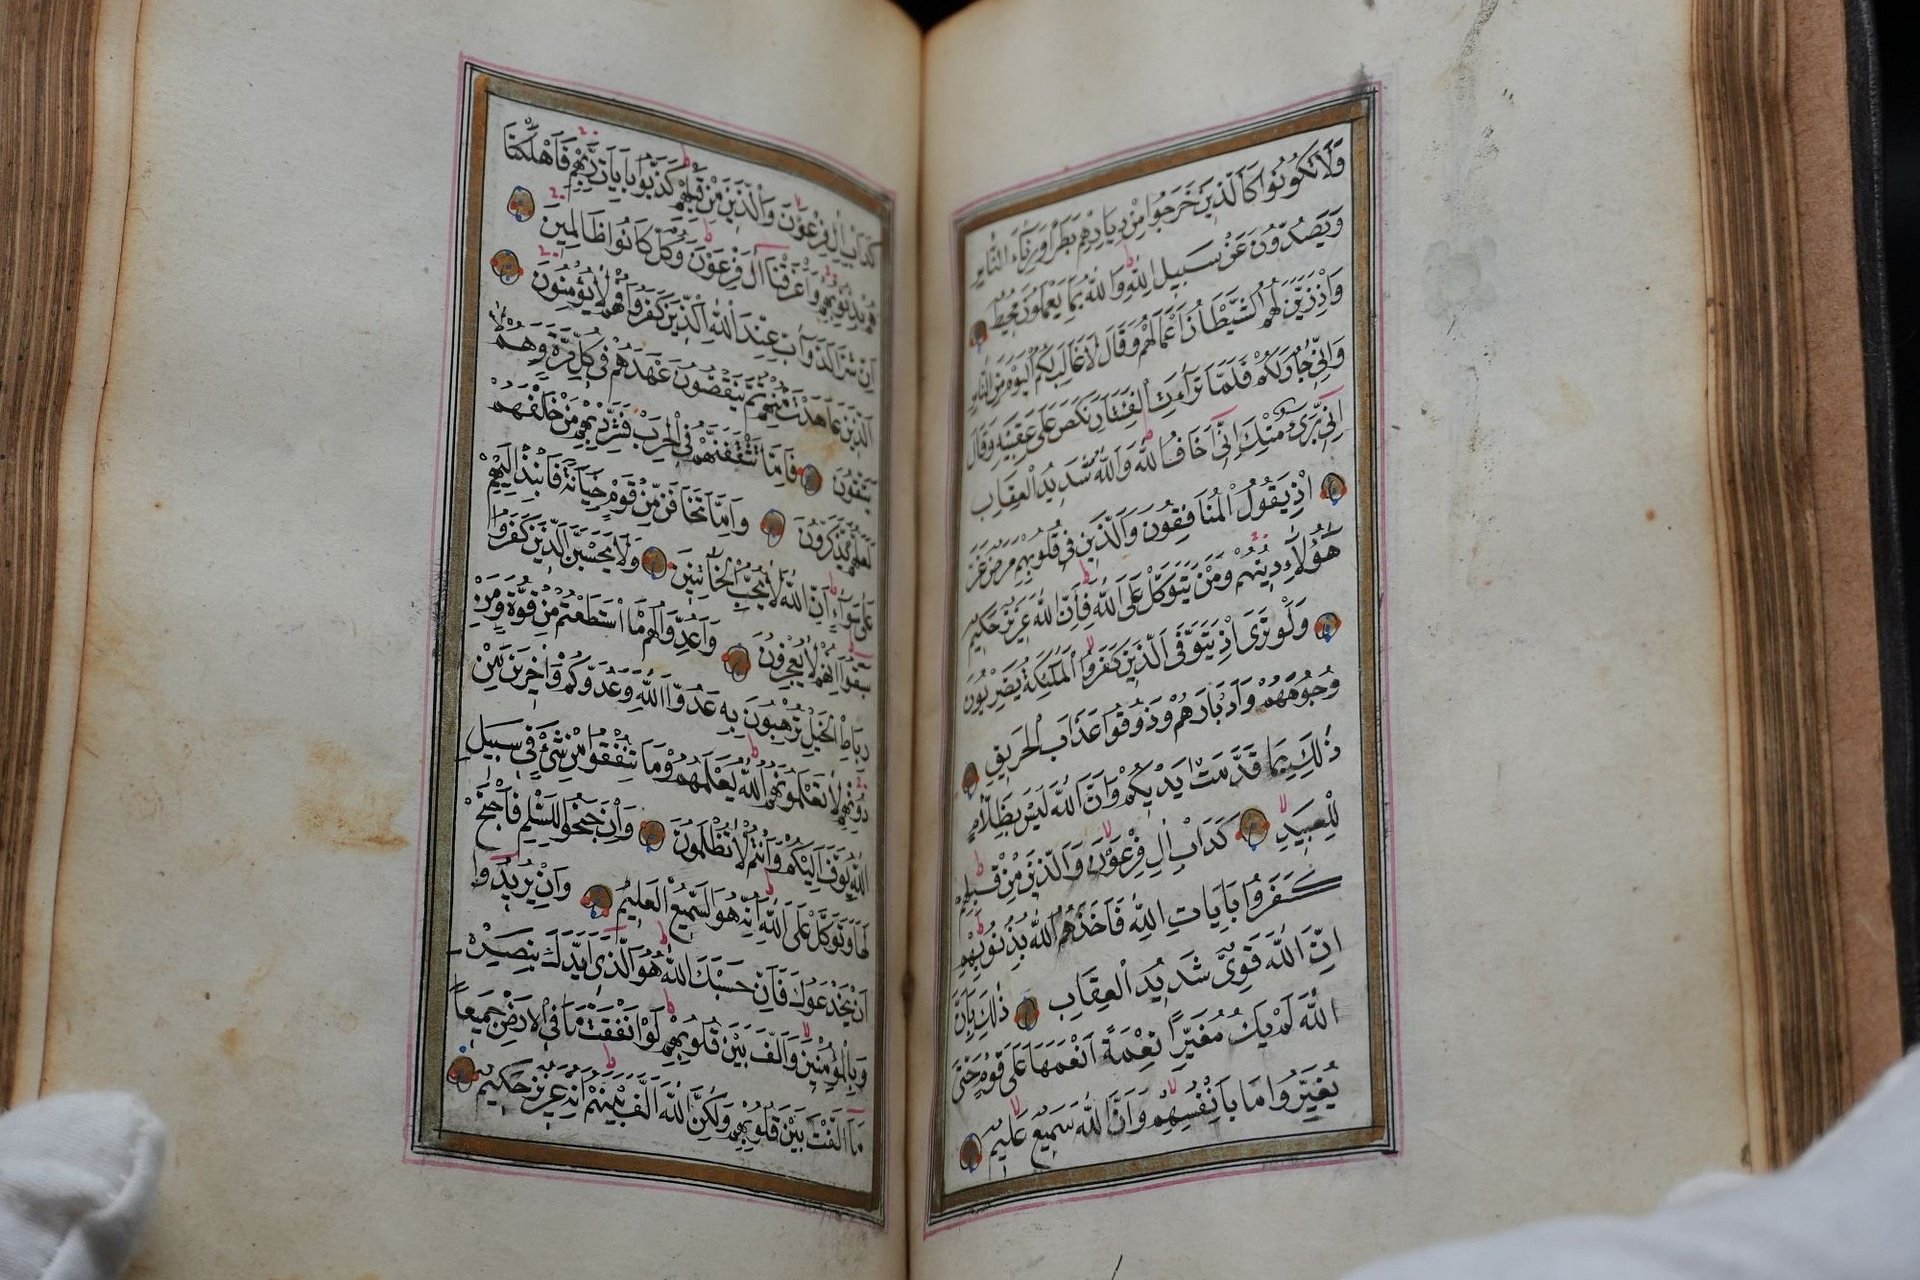 وَلَا تَكُونُوا كَالَّذِينَ خَرَجُوا مِنْ دِيَارِهِمْ بَطَرًا وَرِئَاءَ النَّاسِ
وَيَصُدُّونَ عَنْ سَبِيلِ اللَّهِ وَاللَّهُ بِمَا يَعْمَلُونَ مُحِيطٌ
وَإِذْ زَيَّنَ لَهُمُ الشَّيْطَانُ أَعْمَالَهُمْ وَقَالَ لَا غَالِبَ لَكُمُ الْيَوْمَ مِنَ النَّاسِ
وَإِنِّي جَارٌ لَكُمْ فَلَمَّا تَرَاءَتِ الْفِئَتَانِ نَكَصَ عَلَى عَقِبَيْهِ وَقَالَ
إِنِّي بَرِيءٌ مِنْكَ إِنِّي أَخَافُ اللَّهَ وَاللَّهُ شَدِيدُ الْعِقَابِ
إِذْ يَقُولُ الْمُنَافِقُونَ وَالَّذِينَ فِي قُلُوبِهِمْ مَرَضٌ غَرَّ
هَؤُلَاءِ دِينُهُمْ وَمَنْ يَتَوَكَّلْ عَلَى اللَّهِ فَإِنَّ اللَّهَ عَزِيزٌ حَكِيمٌ
وَلَوْ تَرَى إِذْ يَتَوَفَّى الَّذِينَ كَفَرُوا الْمَلَئِكَةُ يَضْرِبُونَ
وُجُوهَهُمْ وَأَدْبَارَهُمْ وَذُوقُوا عَذَابَ الْحَرِيقِ
ذَلِكَ بِمَا قَدَّمَتْ أَيْدِيكُمْ وَأَنَّ اللَّهَ لَيْسَ بِظَلَّامٍ
لِلْعَبِيدِ كَدَأْبِ آلِ فِرْعَوْنَ وَالَّذِينَ مِنْ قَبْلِهِمْ
كَفَرُوا بِآيَاتِ اللَّهِ فَأَخَذَهُمُ اللَّهُ بِذُنُوبِهِمْ
إِنَّ اللَّهَ قَوِيٌّ شَدِيدُ الْعِقَابِ ذَلِكَ بِأَنَّ
اللَّهَ لَمْ يَكُ مُغَيِّرًا نِعْمَةً أَنْعَمَهَا عَلَى قَوْمٍ حَتَّى
يُغَيِّرُوا مَا بِأَنْفُسِهِمْ وَأَنَّ اللَّهَ سَمِيعٌ عَلِيمٌ
كَدَأْبِ آلِ فِرْعَوْنَ وَالَّذِينَ مِنْ قَبْلِهِمْ كَذَّبُوا بِآيَاتِ رَبِّهِمْ فَأَهْلَكْنَا
هُمْ بِذُنُوبِهِمْ وَأَغْرَقْنَا آلَ فِرْعَوْنَ وَكُلٌّ كَانُوا ظَالِمِينَ
إِنَّ شَرَّ الدَّوَابِّ عِنْدَ اللَّهِ الَّذِينَ كَفَرُوا فَهُمْ لَا يُؤْمِنُونَ
الَّذِينَ عَاهَدْتَ مِنْهُمْ ثُمَّ يَنْقُضُونَ عَهْدَهُمْ فِي كُلِّ مَرَّةٍ وَهُمْ لَا
يَتَّقُونَ فَإِمَّا تَثْقَفَنَّهُمْ فِي الْحَرْبِ فَشَرِّدْ بِهِمْ مَنْ خَلْفَهُمْ
لَعَلَّهُمْ يَذَّكَّرُونَ وَإِمَّا تَخَافَنَّ مِنْ قَوْمٍ خِيَانَةً فَانْبِذْ إِلَيْهِمْ
عَلَى سَوَاءٍ إِنَّ اللَّهَ لَا يُحِبُّ الْخَائِنِينَ وَلَا يَحْسَبَنَّ الَّذِينَ كَفَرُوا
سَبَقُوا إِنَّهُمْ لَا يُعْجِزُونَ وَأَعِدُّوا لَهُمْ مَا اسْتَطَعْتُمْ مِنْ قُوَّةٍ وَمِنْ
رِبَاطِ الْخَيْلِ تُرْهِبُونَ بِهِ عَدُوَّ اللَّهِ وَعَدُوَّكُمْ وَآخَرِينَ مِنْ
دُونِهِمْ لَا تَعْلَمُونَهُمُ اللَّهُ يَعْلَمُهُمْ وَمَا تُنْفِقُوا مِنْ شَيْءٍ فِي سَبِيلِ
اللَّهِ يُوَفَّ إِلَيْكُمْ وَأَنْتُمْ لَا تُظْلَمُونَ وَإِنْ جَنَحُوا لِلسَّلْمِ فَاجْنَحْ
لَهَا وَتَوَكَّلْ عَلَى اللَّهِ إِنَّهُ هُوَ السَّمِيعُ الْعَلِيمُ وَإِنْ يُرِيدُوا
أَنْ يَخْدَعُوكَ فَإِنَّ حَسْبَكَ اللَّهُ هُوَ الَّذِي أَيَّدَكَ بِنَصْرِهِ
وَبِالْمُؤْمِنِينَ وَأَلَّفَ بَيْنَ قُلُوبِهِمْ لَوْ أَنْفَقْتَ مَا فِي الْأَرْضِ جَمِيعًا
مَا أَلَّفْتَ بَيْنَ قُلُوبِهِمْ وَلَكِنَّ اللَّهَ أَلَّفَ بَيْنَهُمْ إِنَّهُ عَزِيزٌ حَكِيمٌ